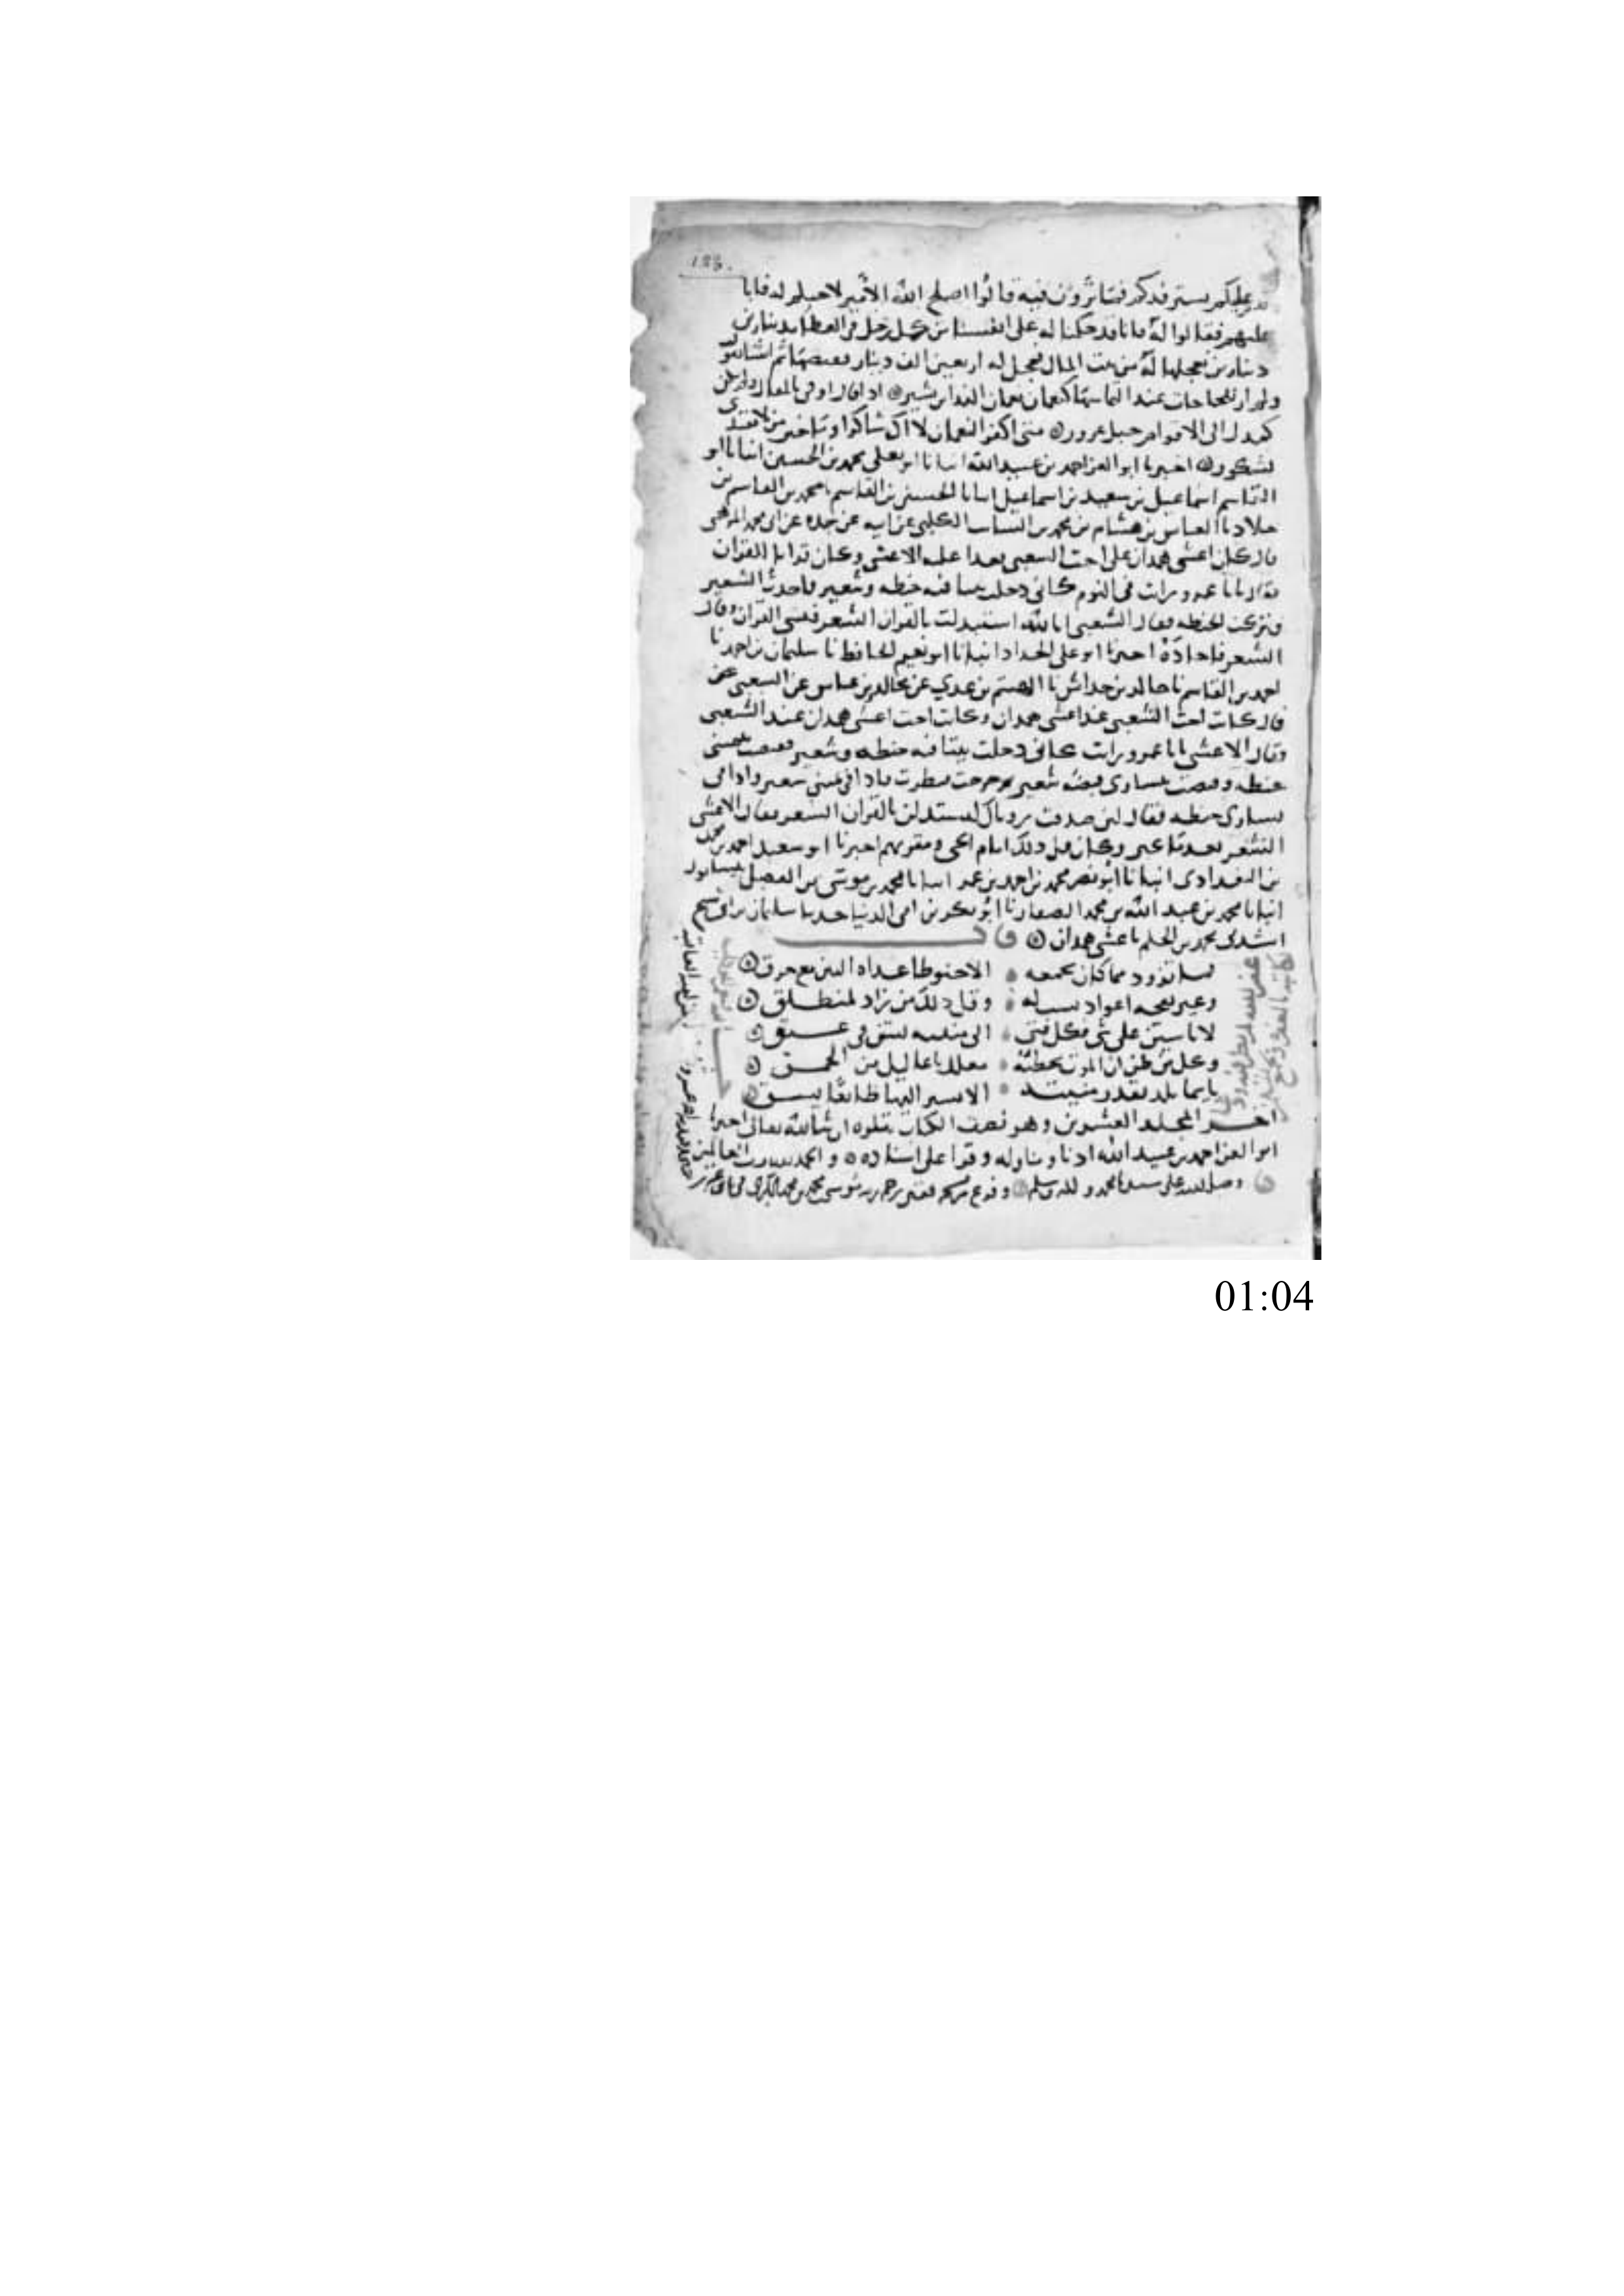 عليكم يسترفدكم فما ترون فيه قالوا اصلح الله الأمير لا حبلم له فابا
عليهم فقالوا له فانا قد حكمنا له على انفسنا من كل رجل في العطا بدينارين
دينارين نعجلها له من بيت المال فعجل له اربعين الف دينار فقبضها ثم انشا يقول
ولم ار للحاجات عند التماسها كنعمان نعمان الندا بن بشير اذا قال اوفى بالمقال ولم يكن
كمدل الى الاقوام حبل غرور متى اكفر النعمان لا اك شاكرا وما خير من لا يقتدى
بشكور اخبرنا ابو العز احمد بن عبيد الله انبانا ابو يعلى محمد بن الحسين انبانا ابو
القاسم اسماعيل بن سعيد بن اسماعيل انبانا الحسين بن القاسم نا محمد بن القاسم بن
خلاد نا العباس بن هشام بن محمد بن السائب الكلبي عن ابيه عن جده عن ابي محمد المرهبي
قال كان اعشى همدان على اخت الشعبي بعدا على الاعشى وكان قد قرا القران
فقال يابا عمرو رايت في النوم كاني دخلت بيتا فيه حنطه وشعير فاخذت الشعير
وتركت الحنطه فقال الشعبي انا لله استبدلت بالقران الشعر فنسي القران وقال
الشعر فاجاده اخبرنا ابو علي الحداد انبانا ابو نعيم الحافظ نا سليمان بن احمد نا
احمد بن القاسم نا خالد بن خداش نا الهيثم بن عدي عن مجالد وابن عياش عن الشعبي
قال كانت اخت الشعبي عند اعشى همدان وكانت اخت اعشى همدان عند الشعبي
وقال الاعشى يابا عمرو رايت كاني دخلت بيتا فيه حنطه وشعير فقبضت بيميني
حنطه وقبضت بيساري قبضه شعير ثم خرجت فنظرت فاذا في يميني شعير واذا في
يساري حنطه فقال لئن صدقت روياك لتستبدلن بالقران الشعر فقال الاعشى
الشعر بعد ما كبر وكان قبل ذلك امام الحي ومقريهم اخبرنا ابو سعيد احمد بن محمد
بن البغدادي انبانا ابو نصر محمد بن احمد بن عمر انبانا محمد بن موسى بن الفضل بنيسابور
انبانا محمد بن عبد الله بن محمد الصفار نا ابو بكر بن ابي الدنيا حدثنا سليمان بن ابي شيخ
انشدني محمد بن الحكم لاعشى همدان قال
فما تزود مما كان يجمعه الا حنوطا غداه البين مع خرق
وغير نفحه اعواد تشب له وقل ذلك من زاد لمنطلق
لا تاسين على شي فكل فتى الى منيته يستن في عنق
وكل من ظن ان الموت يخطئه معلل باعاليل من الحمق
بايما بلد تقدر منيته الا يسير اليها طائعا يسق
اخر المجلد العشرين وهو نصف الكتاب يتلوه ان شا الله تعالى اخبرنا
ابو العز احمد بن عبيد الله اذنا ومناوله وقرا علي اسناده والحمد لله رب العالمين
وصلى الله على سيدنا محمد واله وسلم
01:04